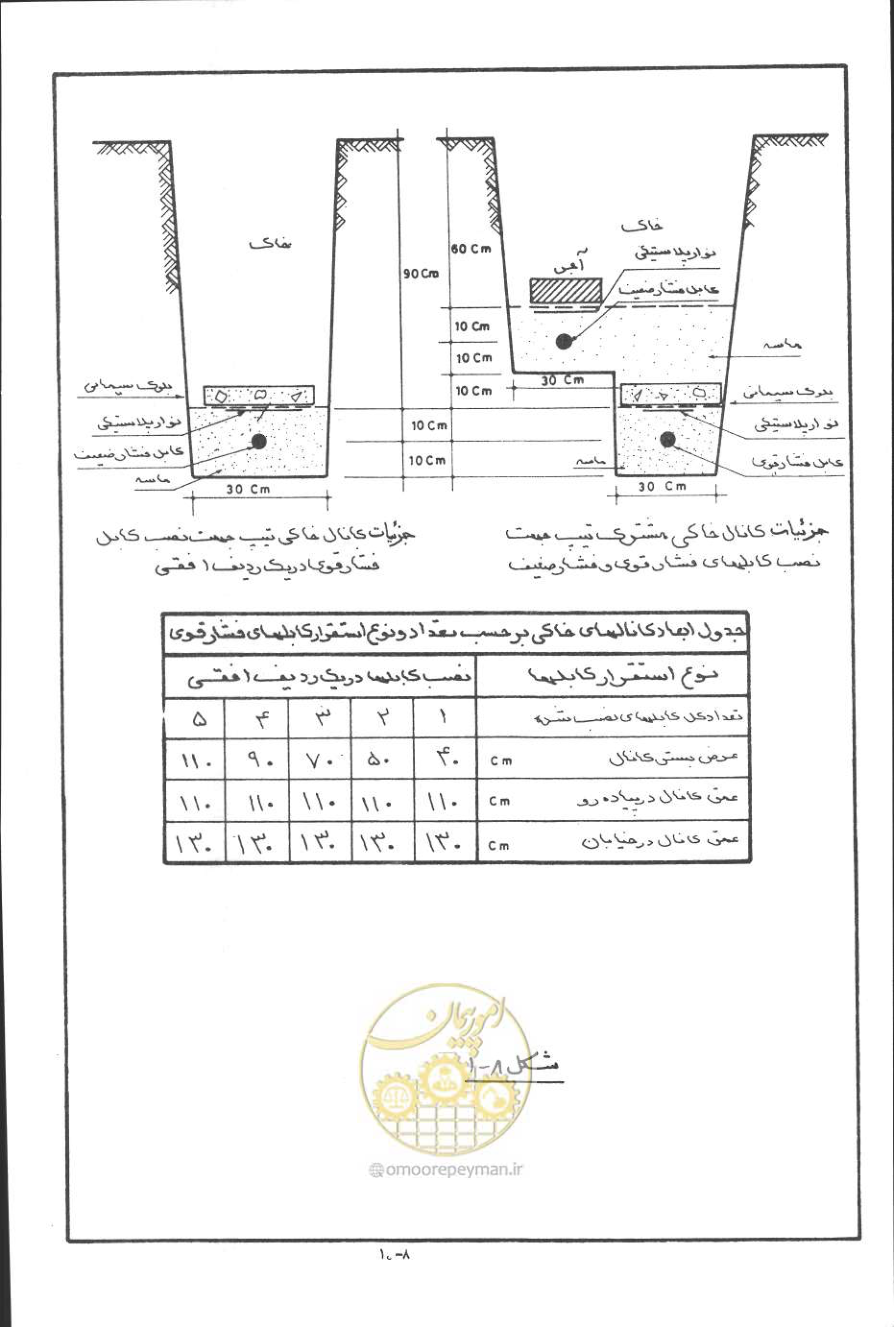 خاک
90 Cm
10 Cm
10 Cm
30 Cm
بلوک سیمانی
نوار پلاستیکی
کابل فشار ضعیف
ماسه
جزئیات کانال خاکی تیپ جهت نصب کابل
فشار قوی در یک ردیف افقی
خاک
60 Cm
10 Cm
10 Cm
10 Cm
آجر
نوار پلاستیکی
کابل فشار ضعیف
ماسه
30 Cm
بلوک سیمانی
نوار پلاستیکی
کابل فشار قوی
ماسه
30 Cm
جزئیات کانال خاکی مشترک تیپ جهت
نصب کابلهای فشار قوی و فشار ضعیف
جدول ابعاد کانالهای خاکی برحسب تعداد و نوع استقرار کابلهای فشار قوی
نوع استقرار کابلها نصب کابلها در یک ردیف افقی
تعداد کل کابلهای نصب شده ۱ ۲ ۳ ۴ ۵
عرض پستی کانال Cm ۴۰ ۵۰ ۷۰ ۹۰ ۱۱۰
عمق کانال در پیاده رو Cm ۱۱۰ ۱۱۰ ۱۱۰ ۱۱۰ ۱۱۰
عمق کانال در خیابان Cm ۱۳۰ ۱۳۰ ۱۳۰ ۱۳۰ ۱۳۰
امور پیمان
شکل ۸-۱
omoorepeyman.ir
۸-۱۰